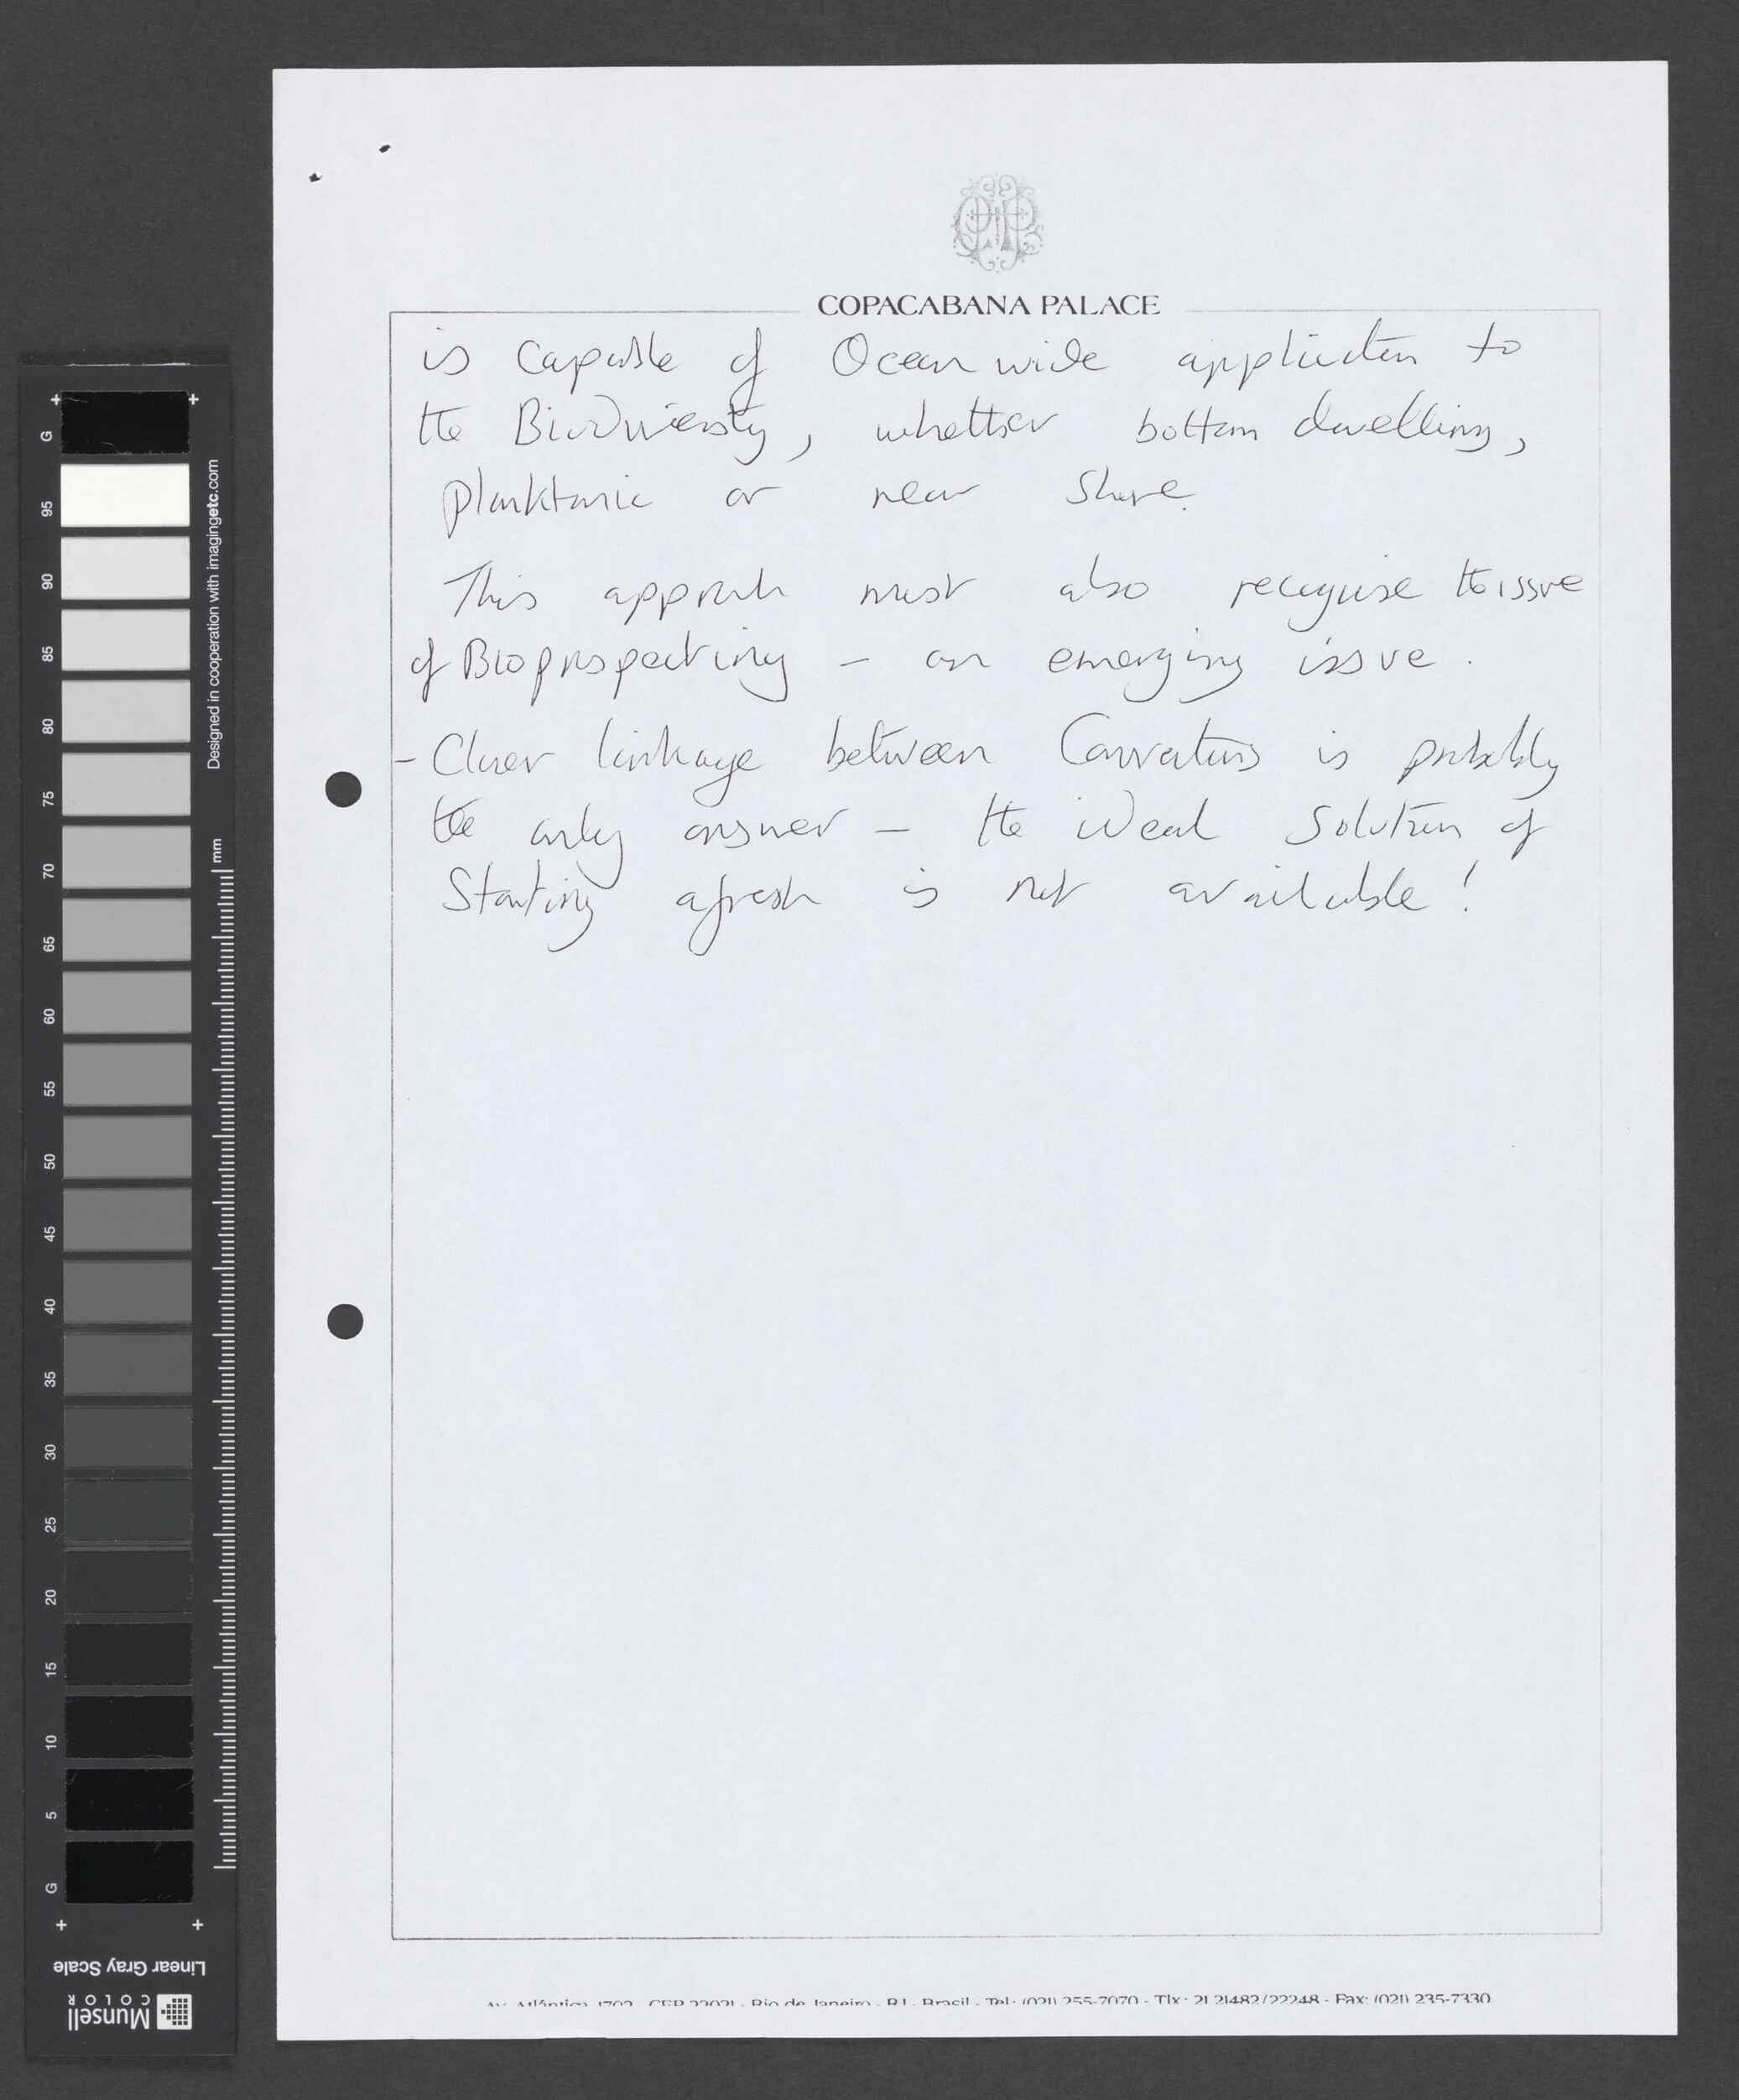 COPACABANA PALACE
is capable of Ocean wide application to
the Biodiversity, whether bottom dwelling,
planktonic or near shore.
This approach must also recognise the issue
of Bioprospecting – an emerging issue.
- Closer linkage between Conventions is probably
the only answer – the ideal solution of
Starting afresh is not available!
Av. Atlântica 1702 - CEP 22021 - Rio de Janeiro - RJ - Brasil - Tel.: (021) 255-7070 - Tlx.: 21 21482/22248 - Fax: (021) 235-7330
G
95
90
85
80
75
70
65
60
55
50
45
40
35
30
25
20
15
10
5
G
Designed in cooperation with imagingetc.com
mm
Linear Gray Scale
Munsell
COLOR